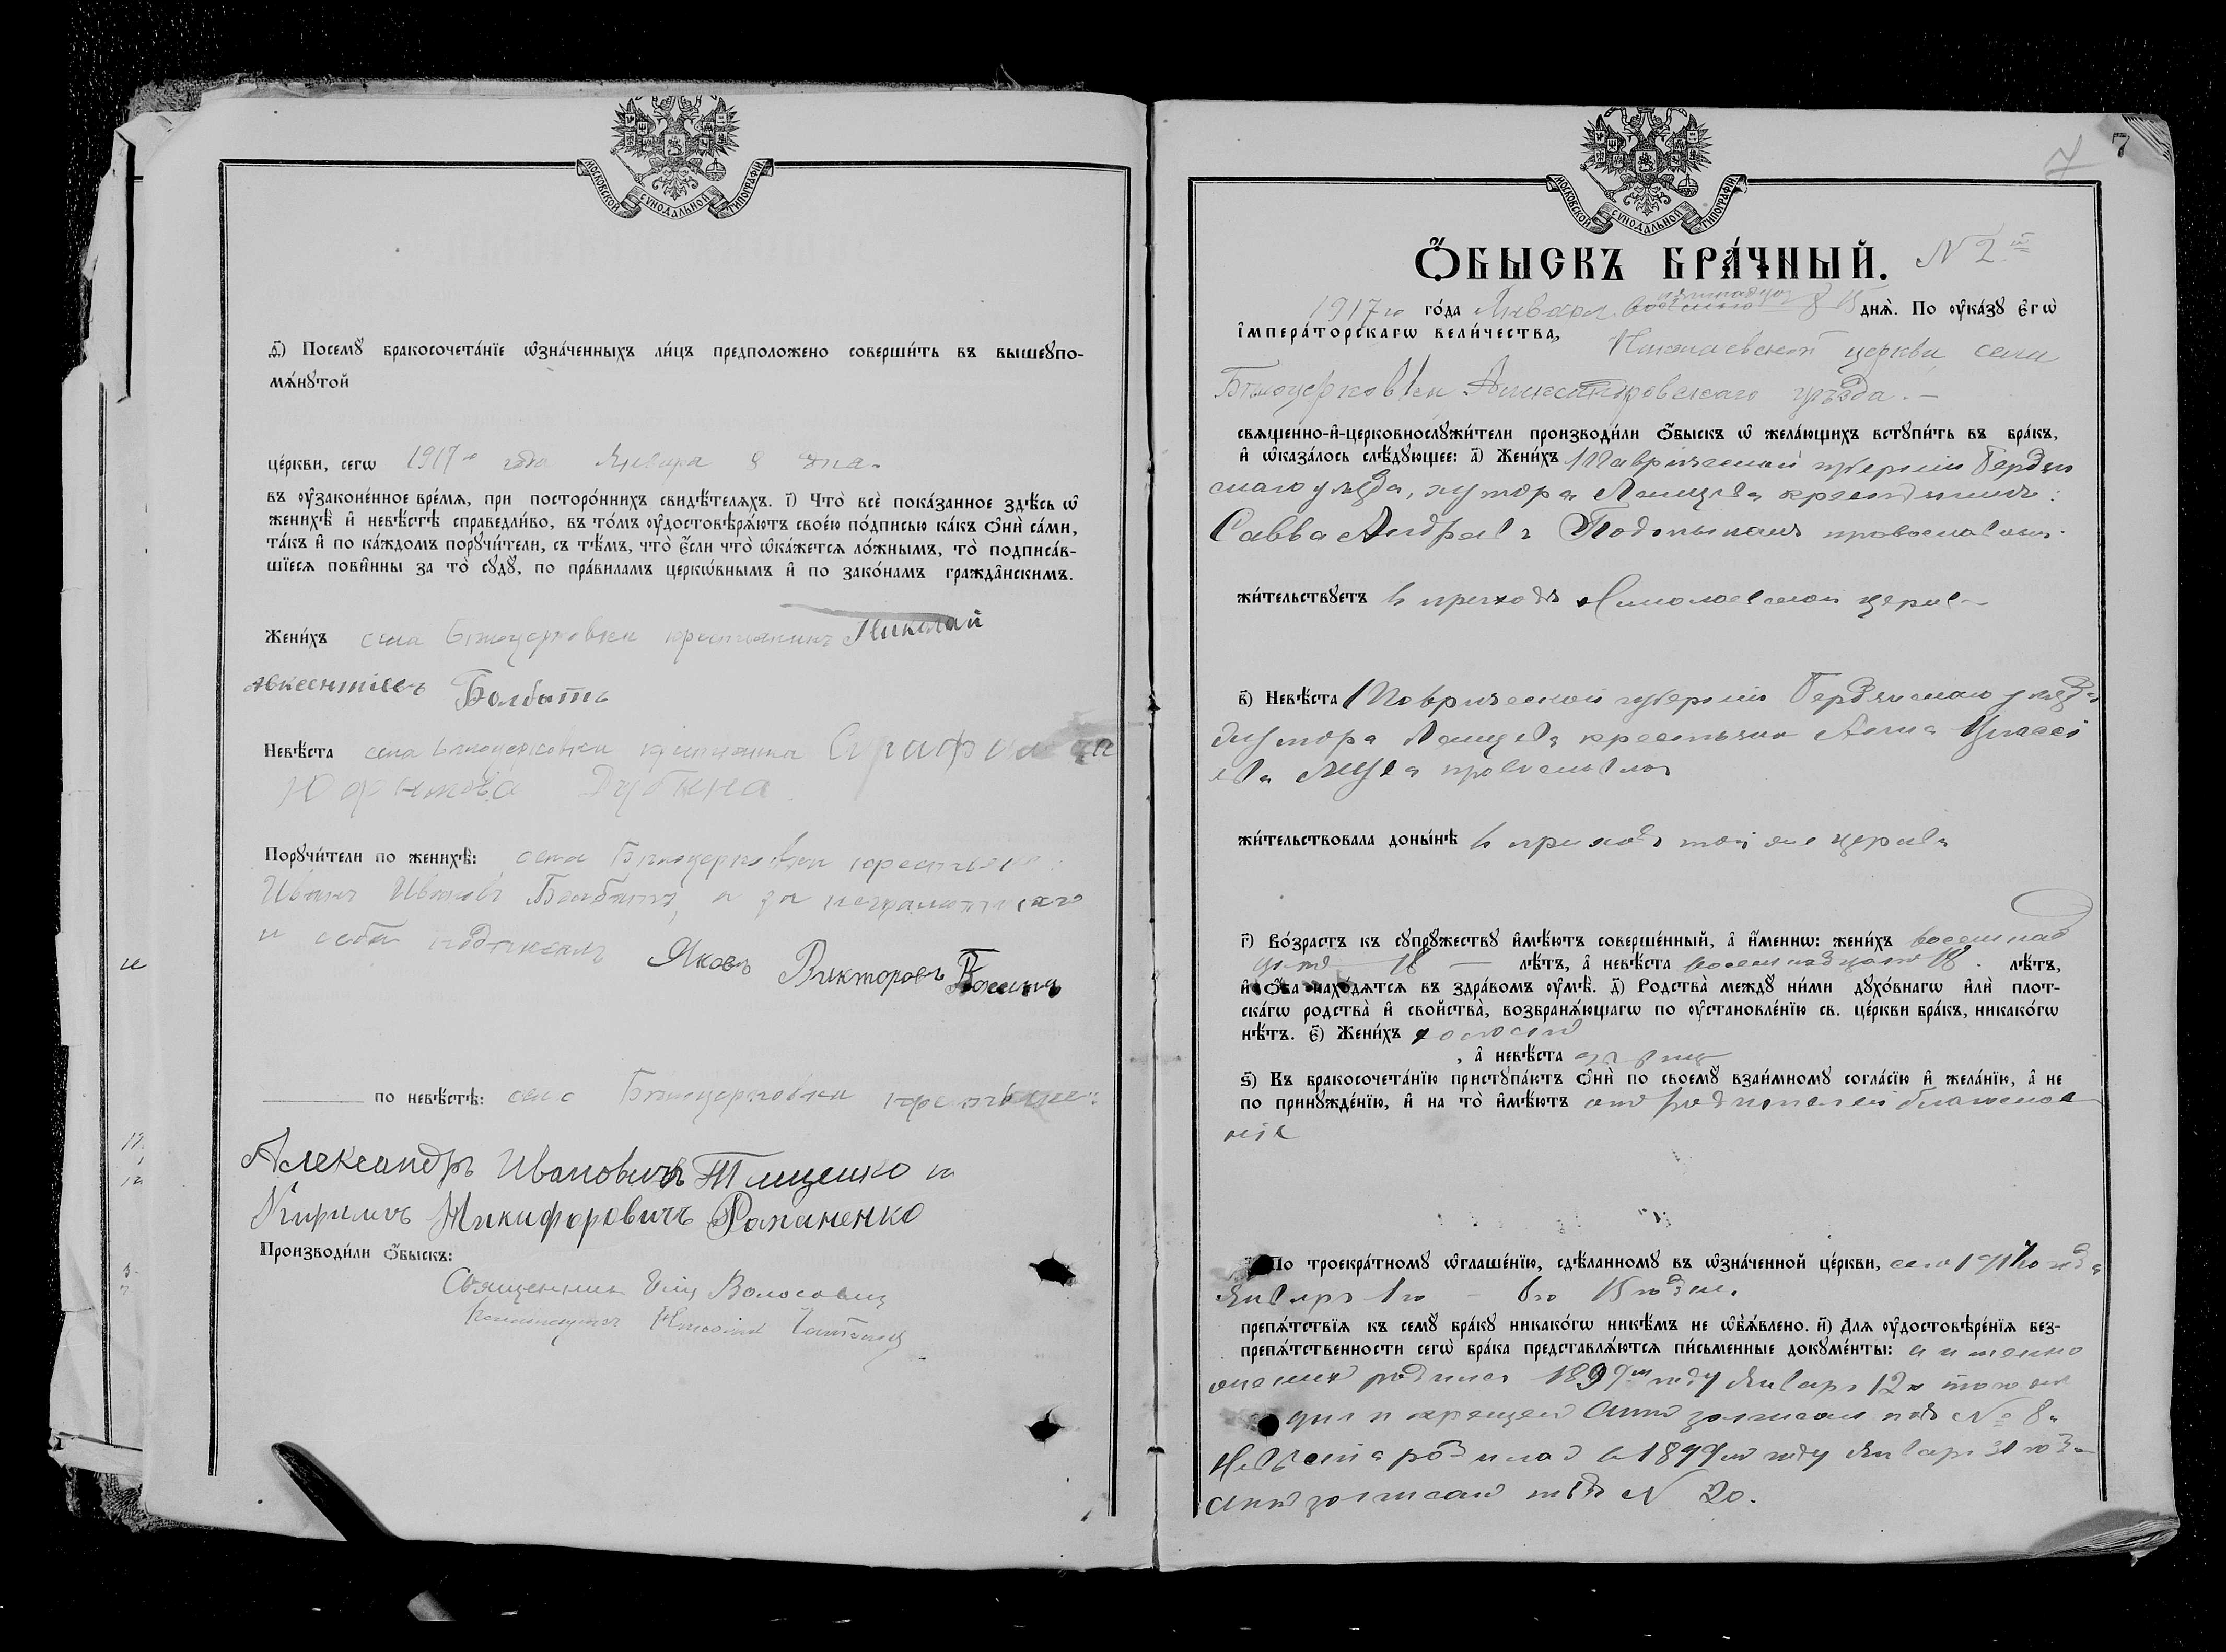 МОСКОВСКОЙ СѴНОДАЛЬНОЙ ТИПОГРАФІИ
д҃) Посемꙋ бракосочета́нїе ѡ҆зна́ченныхъ ли́цъ предположено соверши́ть въ вышеꙋпо-
мѧ́нꙋтой
це́ркви, сегѡ 1917 го года Января 8 дна.
въ ᲂу҆законе́нное вре́мѧ, при посторо́ннихъ свидѣ́телѧхъ. і҃) Что̀ всѐ пока́занное здѣ́сь ѡ
женихѣ̀ и҆ невѣ́стѣ справедли́во, въ то́мъ ᲂу҆достовѣрѧ́ютъ свое́ю по́дписью ка́къ ѻ҆нѝ са́ми,
та́къ и҆ по ка́ждомъ порꙋчи́тели, съ тѣ́мъ, что̀ є҆́сли что̀ ѡ҆ка́жетсѧ ло́жнымъ, то̀ подписа́в-
шїесѧ пови́нны за то̀ сꙋдꙋ̀, по пра́виламъ церкѡ́внымъ и҆ по зако́намъ гражда́нскимъ.
Жени́хъ села Бѣлоцерковки крестьянинъ Николай
Авксентіевъ Болбатъ
Невѣ́ста села Бѣлоцерковки
Дубина
Порꙋчи́тели по женихѣ̀: села Бѣлоцерковки крестьяне:
Иванъ Ивановъ Болбатъ, а за неграмотнаго
и себя подписалъ Яковъ Викторовъ
по невѣ́стѣ: села Бѣлоцерковки крестьяне:
Александръ Ивановичъ Тищенко и
Кирилъ Никифоровичъ Рапаненко
Производи́ли ѻ҆́быскъ:
Священникъ Волосовиц
7 7
МОСКОВСКОЙ СѴНОДАЛЬНОЙ ТИПОГРАФІИ
Ѻ҆́БЫСКЪ БРА́ЧНЫЙ. N 2й
1917 го го́да Января 15 днѧ̀. По ᲂу҆ка́зꙋ є҆гѡ̀
і҆мпера́торскагѡ вели́чества, Николаевской церкви, села
Бѣлоцерковки Александровскаго уѣзда. –
свѧще́нно-и҆-церковнослꙋжи́тели производи́ли ѻ҆́быскъ ѡ҆ жела́ющихъ встꙋпи́ть въ бра́къ,
и҆ ѡ҆каза́лось слѣ́дꙋющее: а҃) Жени́хъ Таврической губерніи Бердян
скаго уѣзда, хутора крестьянинъ:
Савва Андреевъ православн.
жи́тельствꙋетъ в приходѣ Николаевской церкв
в҃) Невѣ́ста Таврической губерніи Бердянскаго уѣзда
хутора крестьянка Анна
православная
жи́тельствовала доны́нѣ в приходѣ той же церкви
г҃) Во́зрастъ къ сꙋпрꙋ́жествꙋ и҆мѣ́ютъ соверше́нный, а҆ и҆́меннѡ: жени́хъ восемнад
цать 18 — лѣ́тъ, а҆ невѣ́ста восемнадцать 18. лѣ́тъ,
и҆ ѻ҆́ба нахо́дѧтсѧ въ здра́вомъ ᲂу҆мѣ̀. д҃) Родства̀ междꙋ ни́ми дꙋхо́внагѡ и҆лѝ плот-
ска́гѡ родства̀ и҆ свойства̀, возбранѧ́ющагѡ по ᲂу҆становле́нїю св. це́ркви бра́къ, никако́гѡ
нѣ́тъ. є҃) Жени́хъ холостъ
, а҆ невѣ́ста дѣвица
ѕ҃) Къ бракосочета́нїю пристꙋпа́ютъ ѻ҆нѝ по своемꙋ̀ взаи́мномꙋ согла́сїю и҆ жела́нїю, а҆ не
по принꙋжде́нїю, и҆ на то̀ и҆мѣ́ютъ отъ родителей благослов
нія
По троекра́тномꙋ ѡ҆глаше́нїю, сдѣ́ланномꙋ въ ѡ҆зна́ченной це́ркви, сего 1917 го года
Января 1го – 6го 15го дня.
препѧ́тствїѧ къ семꙋ̀ бра́кꙋ никако́гѡ никѣ́мъ не ѡ҆б̾ѧ́влено. и҃) Длѧ ᲂу҆достовѣре́нїѧ без-
препѧ́тственности сегѡ̀ бра́ка представлѧ́ютсѧ пи́сьменные докꙋме́нты: а именно
женихъ родился 1899 м году Января 12го того же
дня и крещенъ Актъ записанъ подъ № 8.
Невѣста родилась в 1899 м году Января 31го дня
Актъ записанъ подъ N 20.